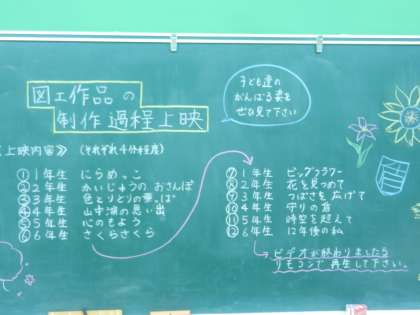 図工作品の
制作過程上映
子ども達の
がんばる姿を
ぜひ見て下さい
上映内容》（それぞれ4分程度）
①1年生 にらめっこ
②2年生 かいじゅうの おさんぽ
③3年生 色とりどりの葉っぱ
④4年生 山中湖の思い出
⑤5年生 心のもよう
⑥6年生 さくらさくら
⑦1年生 ビッグフラワー
⑧2年生 花を見つめて
⑨3年生 つばさを広げて
⑩4年生 守りの
⑪5年生 時空を超えて
⑫6年生 12年後の私
ビデオが終わりましたら
リモコンで再生して下さい。